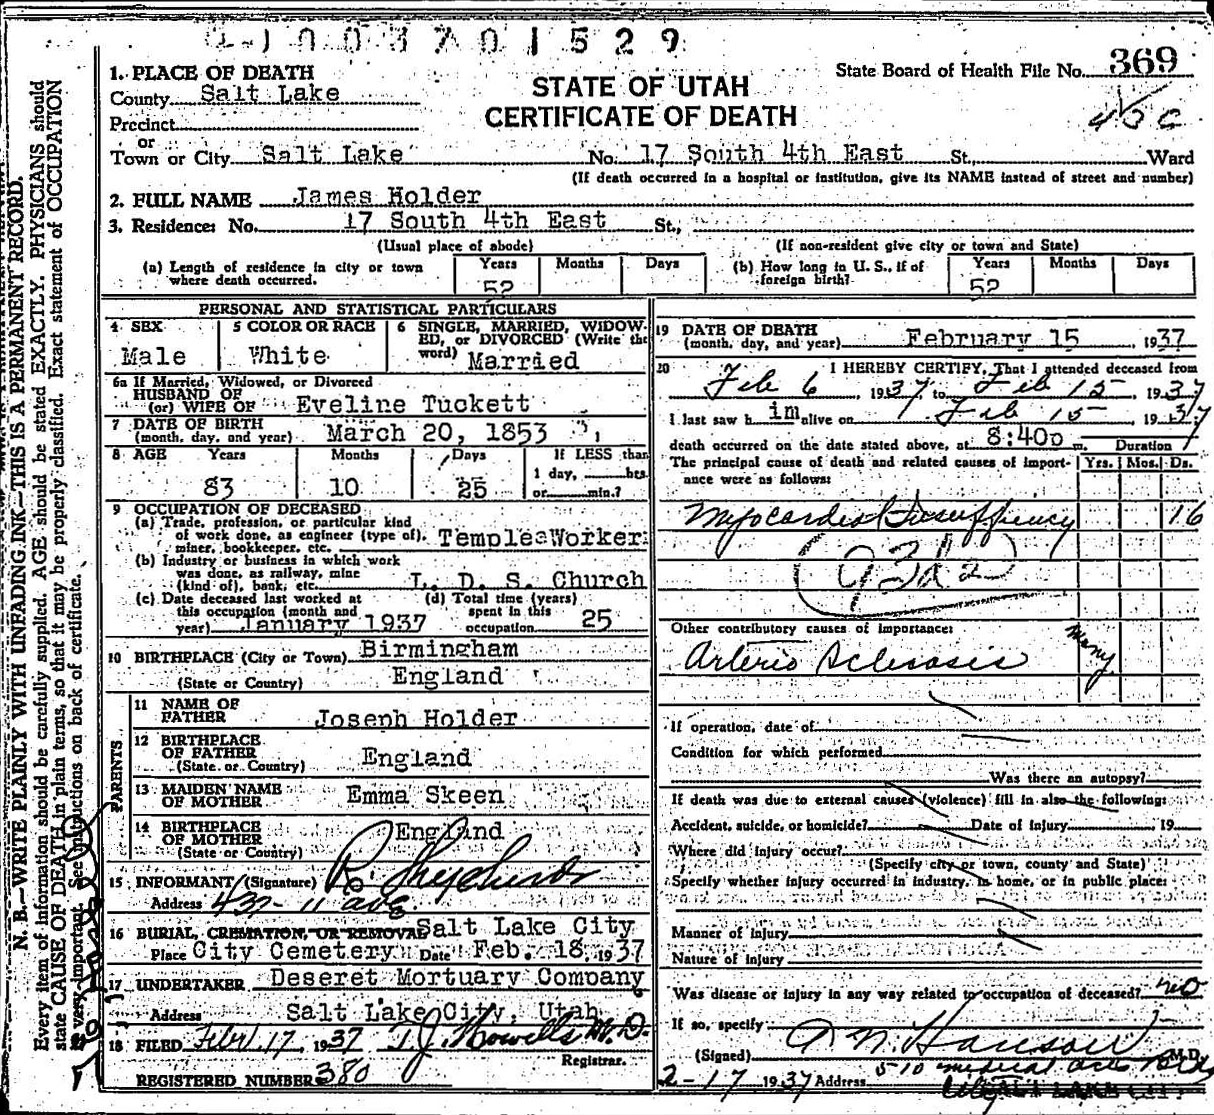 1003701529
1. PLACE OF DEATH
County Salt Lake
Precinct
or
Town or City Salt Lake No. 17 South 4th East St., Ward
STATE OF UTAH
CERTIFICATE OF DEATH
State Board of Health File No. 369
(If death occurred in a hospital or institution, give its NAME instead of street and number)
2. FULL NAME James Holder
3. Residence: No. 17 South 4th East St.,
(Usual place of abode) (If non-resident give city or town and State)
(a) Length of residence in city or town where death occurred. Years 52 Months Days
(b) How long in U. S., if of foreign birth? Years 52 Months Days
PERSONAL AND STATISTICAL PARTICULARS
4 SEX Male
5 COLOR OR RACE White
6 SINGLE, MARRIED, WIDOWED, or DIVORCED (Write the word) Married
6a If Married, Widowed, or Divorced
HUSBAND OF
(or) WIFE OF Eveline Tuckett
7 DATE OF BIRTH
(month, day, and year) March 20, 1853
8 AGE Years 83 Months 10 Days 25 If LESS than 1 day, hrs. or min.?
9 OCCUPATION OF DECEASED
(a) Trade, profession, or particular kind
of work done, as engineer (type of),
miner, bookkeeper, etc. Temple Worker
(b) Industry or business in which work
was done, as railway, mine
(kind of), bank, etc. L. D. S. Church
(c) Date deceased last worked at
this occupation (month and
year) January 1937
(d) Total time (years)
spent in this
occupation 25
10 BIRTHPLACE (City or Town) Birmingham
(State or Country) England
PARENTS
11 NAME OF
FATHER Joseph Holder
12 BIRTHPLACE
OF FATHER
(State or Country) England
13 MAIDEN NAME
OF MOTHER Emma Skeen
14 BIRTHPLACE
OF MOTHER
(State or Country) England
15 INFORMANT (Signature)
Address 437 - 11 ave
16 BURIAL, CREMATION, OR REMOVAL Salt Lake City
Place City Cemetery Date Feb. 18, 1937
17 UNDERTAKER Deseret Mortuary Company
Address Salt Lake City, Utah
18 FILED Feb 17 1937 T. J. Howells M.D.
Registrar.
REGISTERED NUMBER 380
19 DATE OF DEATH
(month, day, and year) February 15, 1937
20 I HEREBY CERTIFY, That I attended deceased from
Feb 6, 1937, to Feb 15, 1937
I last saw him alive on Feb 15, 1937
death occurred on the date stated above, at 8:40 m. Duration
The principal cause of death and related causes of importance were as follows: Yrs. Mos. Ds.
Myocardial Insufficiency 16
Other contributory causes of importance:
Arterio Sclerosis many
If operation, date of
Condition for which performed
Was there an autopsy?
If death was due to external causes (violence) fill in also the following:
Accident, suicide, or homicide? Date of Injury 19
Where did injury occur?
(Specify city or town, county and State)
Specify whether injury occurred in industry, in home, or in public place:
Manner of injury
Nature of injury
Was disease or injury in any way related to occupation of deceased? no
If so, specify
(Signed) M.D.
2-17 1937 Address 510 medical arts Bldg
N. B.—WRITE PLAINLY WITH UNFADING INK—THIS IS A PERMANENT RECORD.
Every item of information should be carefully supplied. AGE should be stated EXACTLY. PHYSICIANS should
state CAUSE OF DEATH in plain terms, so that it may be properly classified. Exact statement of OCCUPATION
is very important. See instructions on back of certificate.